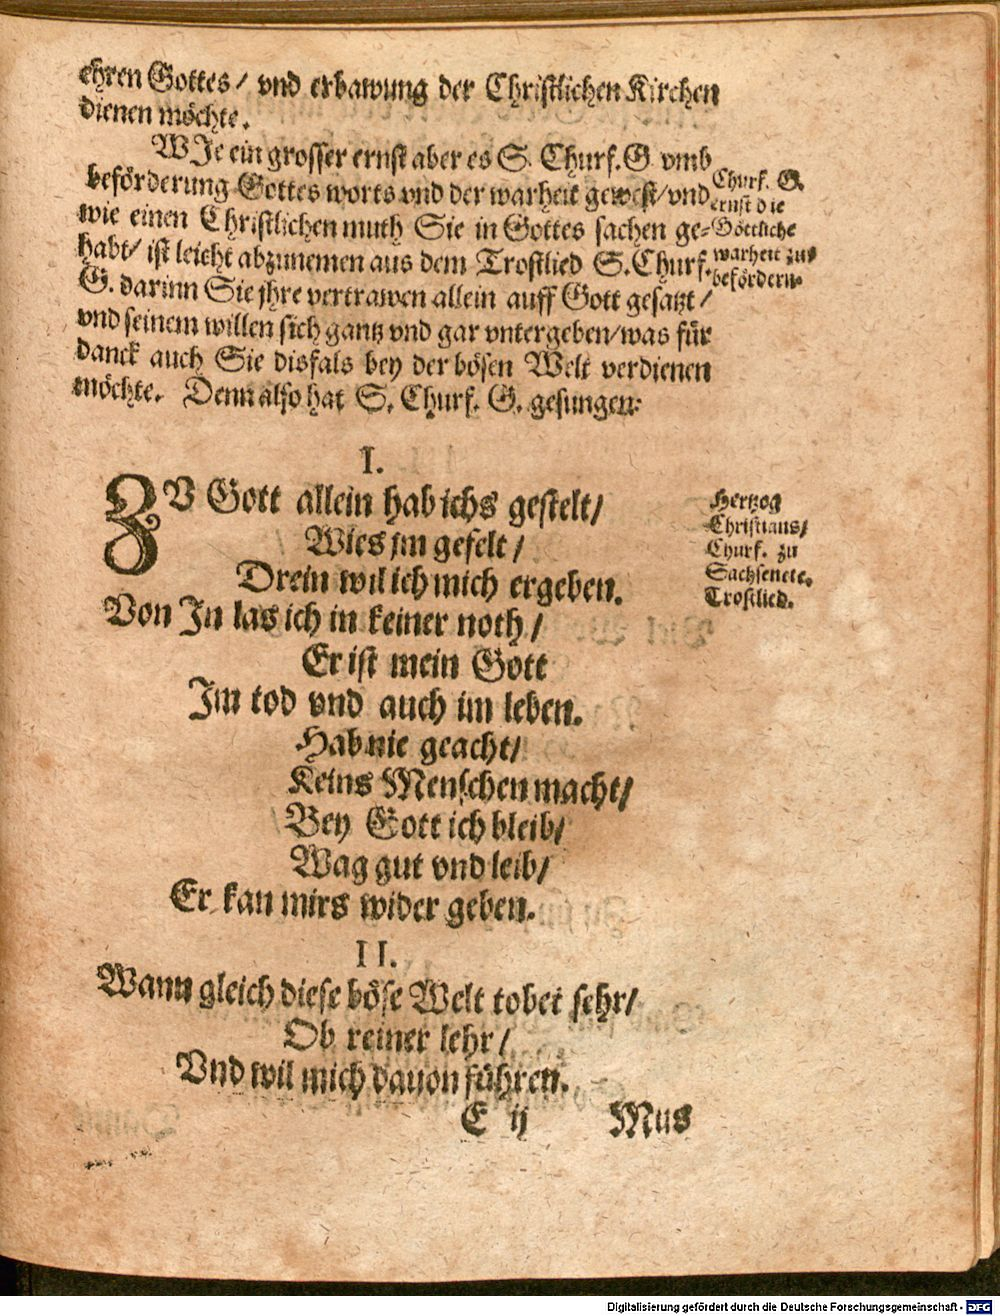 ehren Gottes/ vnd erbawung der Christlichen Kirchen
dienen möchte.
WJe ein grosser ernst aber es S. Churf. G vmb
beförderung Gottes worts vnd der warheit gewest/ vnd
wie einen Christlichen muth Sie in Gottes sachen ge-
habt/ ist leicht abzunemen aus dem Trostlied S. Churf.
G. darinn Sie jhre vertrawen allein auff Gott gesatzt/
vnd seinem willen sich gantz vnd gar vntergeben/ was für
danck auch Sie disfals bey der bösen Welt verdienen
möchte. Denn also hat S. Churf. G. gesungen:
Churf. G.
ernst die
Göttliche
warheit zu
befördern.
I.
ZV Gott allein hab ichs gestelt/
Wies jm gefelt/
Drein wil ich mich ergeben.
Von Jn las ich in keiner noth/
Er ist mein Gott
Jm tod vnd auch im leben.
Hab nie geacht/
Keins Menschen macht/
Bey Gott ich bleib/
Wag gut vnd leib/
Er kan mirs wider geben.
Hertzog
Christians/
Churf. zu
Sachsen etc.
Trostlied.
II.
Wann gleich diese böse Welt tobet sehr/
Ob reiner lehr/
Vnd wil mich dauon führen.
E ij Mus
Digitalisierung gefördert durch die Deutsche Forschungsgemeinschaft - DFG